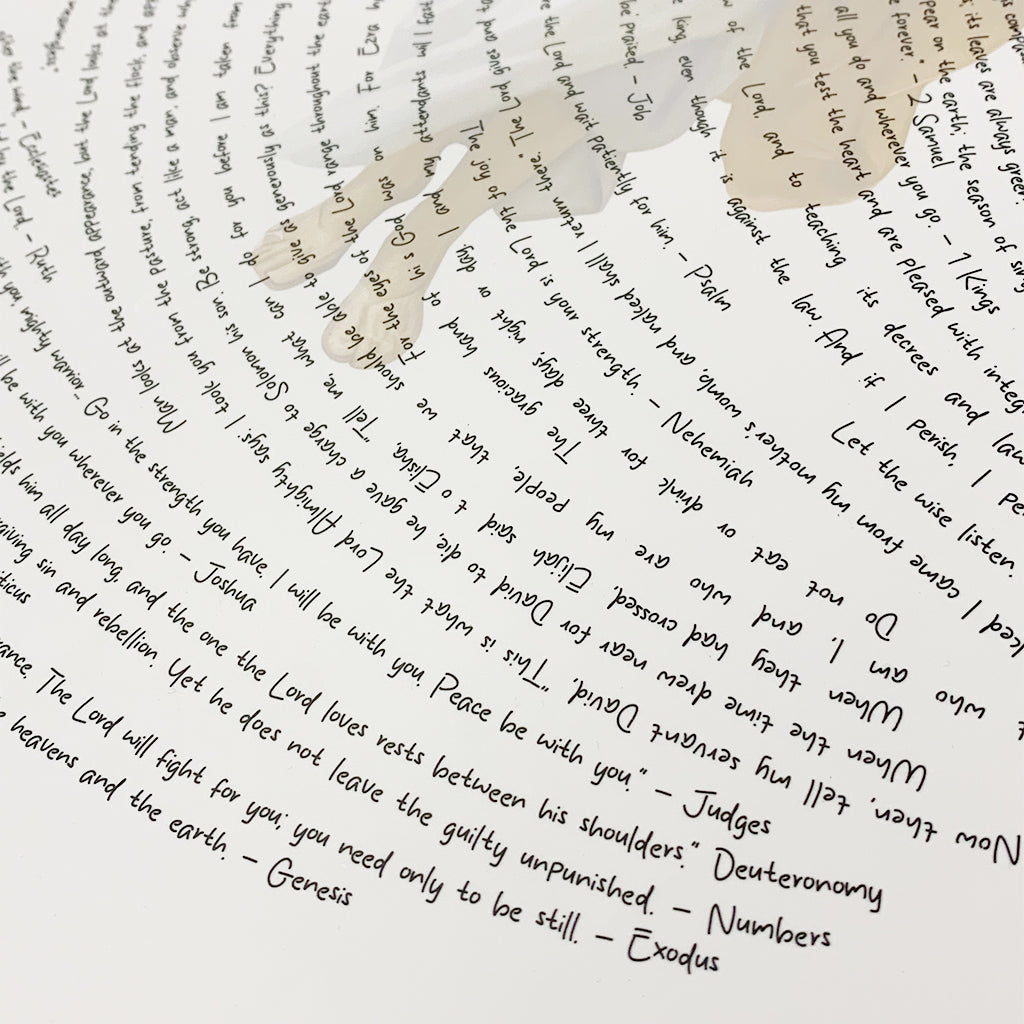 the wind. – Ecclesiastes
the Lord – Ruth
Man looks at the outward appearance, but the Lord looks at the
Now then, tell my servant David, "This is what the Lord Almighty says: I took you from the pasture, from tending the flock, and
When the time drew near for David to die, he gave a charge to Solomon his son. Be strong, act like a man, and observe
When they had crossed, Elijah said to Elisha, "Tell me, what can I do for you before I am taken from
who am I, and who are my people, that we should be able to give as generously as this? Everything
For the eyes of the Lord range throughout the
The gracious hand of his God was on him. For Ezra
Do not eat or drink for three days, night or day. I and my attendants will fast
The joy of the Lord is your strength. – Nehemiah
I came from my mother's womb, and naked shall I return there." The Lord gives and
be praised. – Job
the Lord and wait patiently for him – Psalm
Let the wise listen.
king, even though it is against the law. And if I perish, I
of the Lord, and to teaching its decrees and
that you test the heart and are pleased with
all you do and wherever you go. – 1 Kings
forever." – 2 Samuel
on the earth; the season of
its leaves are always green
mighty warrior– Go in the strength you have. I will be with you. Peace be with you." – Judges
be with you wherever you go. – Joshua
him all day long, and the one the Lord loves rests between his shoulders." Deuteronomy
giving sin and rebellion. Yet he does not leave the guilty unpunished. – Numbers
ticus
The Lord will fight for you; you need only to be still. – Exodus
heavens and the earth. – Genesis